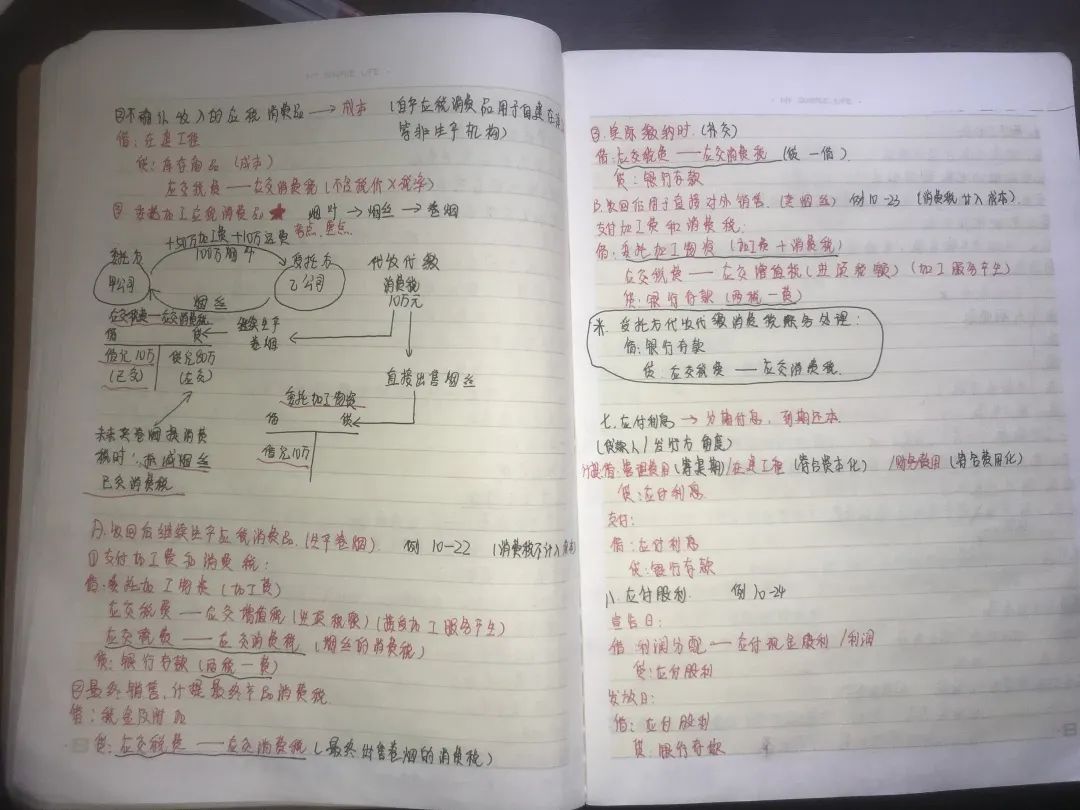 MY SIMPLE LIFE
②不确认收入的应税消费品 → 成本 (自产应税消费品用于自建在
等非生产机构)
借:在建工程
贷:库存商品 (成本)
应交税费——应交消费税 (不含税价×税率)
③ 委托加工应税消费品★ 烟叶→烟丝→卷烟
考点、重点
+50万加工费+10万运费
委托方 100万烟叶 受托方 代收代缴
甲公司 乙公司 消费税
10万元
烟丝
应交税费—应交消费税
借 贷 继续生产
卷烟
借记10万 贷记80万
(已交) (应交)
直接出售烟丝
委托加工物资
借 贷
借记10万
未来卖卷烟提消费
税时,抵减烟丝
已交消费税
A.收回后继续生产应税消费品.(生产卷烟) 例10-22 (消费税不计入成本)
①支付加工费和消费税:
借:委托加工物资 (加工费)
应交税费——应交增值税(进项税额)(加工服务产生)
应交税费——应交消费税 (烟丝的消费税)
贷:银行存款 (两税一费)
②最终销售,计提最终产品消费税.
借:税金及附加
贷:应交税费——应交消费税 (最终出售卷烟的消费税)
MY SIMPLE LIFE
③.实际缴纳时.(补交)
借:应交税费——应交消费税 (贷-借).
贷:银行存款
B.收回后用于直接对外销售.(卖烟丝) 例10-23 (消费税计入成本).
支付加工费和消费税:
借:委托加工物资 (加工费+消费税)
应交税费——应交增值税(进项税额) (加工服务产生)
贷:银行存款 (两税一费)
※.受托方代收代缴消费税账务处理:
借:银行存款
贷:应交税费——应交消费税.
七.应付利息 → 分期付息,到期还本
(贷款人/发行方角度)
计提:借:管理费用(筹建期)/在建工程(符合资本化) /财务费用(符合费用化)
贷:应付利息
支付:
借:应付利息
贷:银行存款
八.应付股利. 例10-24
宣告日:
借:利润分配——应付现金股利/利润
贷:应付股利
发放日:
借:应付股利
贷:银行存款